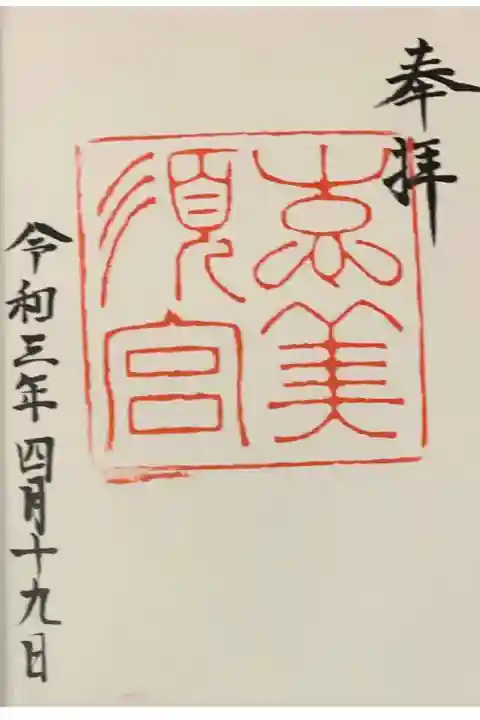 奉拝
志美
須宮
令和三年四月十九日